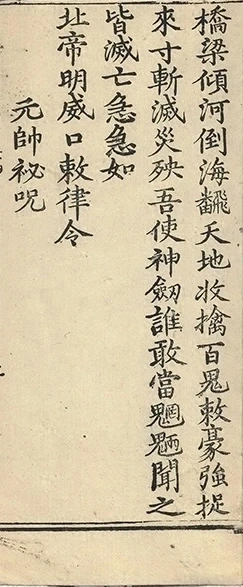 橋梁傾河倒海飜天地收擒百鬼敕豪強捉
來寸斬滅災殃吾使神劒誰敢當魍魎聞之
皆滅亡急急如
北帝明威口敕律令
元帥祕咒